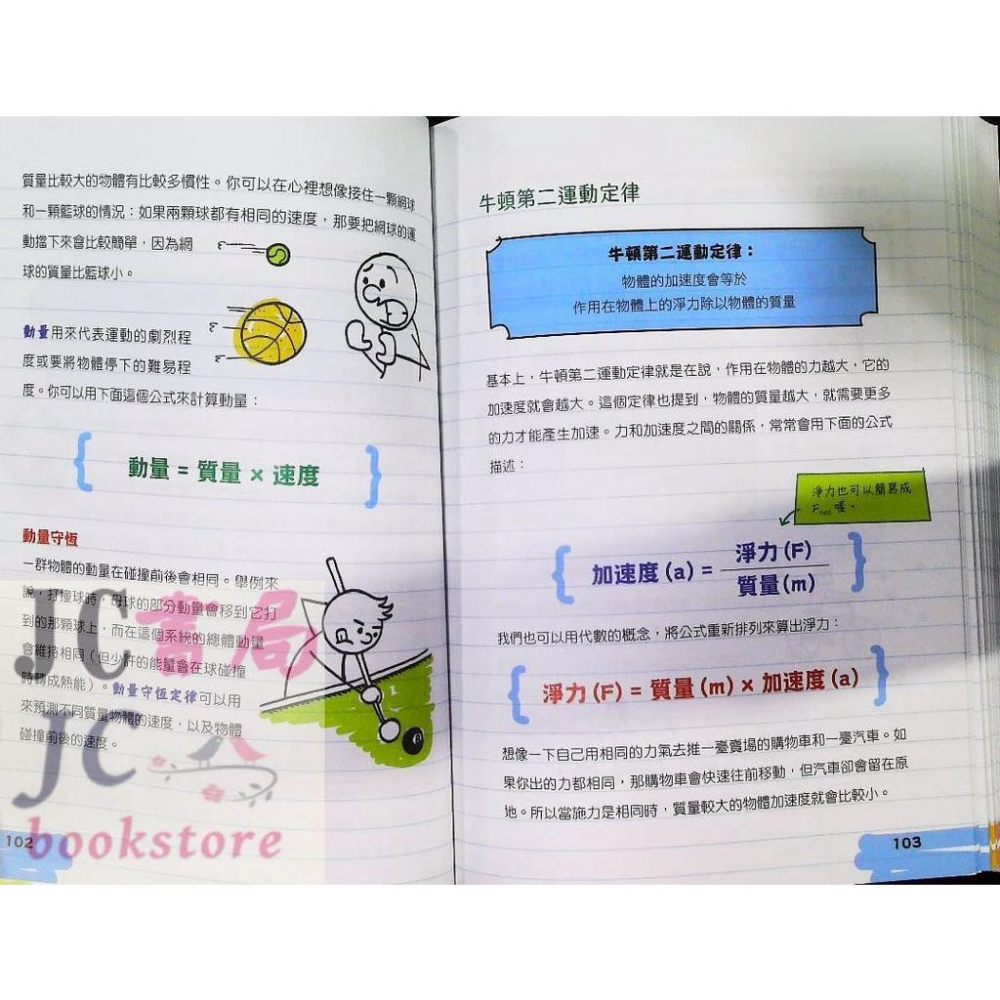 質量比較大的物體有比較多慣性。你可以在心裡想像接住一顆網球
和一顆籃球的情況：如果兩顆球都有相同的速度，那要把網球的運
動擋下來會比較簡單，因為網
球的質量比籃球小。
動量用來代表運動的劇烈程
度或要將物體停下的難易程
度。你可以用下面這個公式來計算動量：
動量 = 質量 × 速度
動量守恆
一群物體的動量在碰撞前後會相同。舉例來
說，打撞球時，母球的部分動量會移到它打
到的那顆球上，而在這個系統的總體動量
會維持相同（但少許的能量會在球碰撞
時轉成熱能）。動量守恆定律可以用
來預測不同質量物體的速度，以及物體
碰撞前後的速度。
8
102
JC書局
JC
bookstore
牛頓第二運動定律
牛頓第二運動定律：
物體的加速度會等於
作用在物體上的淨力除以物體的質量
基本上，牛頓第二運動定律就是在說，作用在物體的力越大，它的
加速度就會越大。這個定律也提到，物體的質量越大，就需要更多
的力才能產生加速。力和加速度之間的關係，常常會用下面的公式
描述：
淨力也可以簡寫成
Fnet 喔。
加速度 (a) = 淨力 (F)
質量 (m)
我們也可以用代數的概念，將公式重新排列來算出淨力：
淨力 (F) = 質量 (m) × 加速度 (a)
想像一下自己用相同的力氣去推一臺賣場的購物車和一臺汽車。如
果你出的力都相同，那購物車會快速往前移動，但汽車卻會留在原
地。所以當施力是相同時，質量較大的物體加速度就會比較小。
103